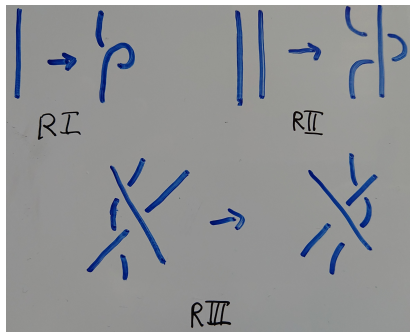 RI
RII
RIII